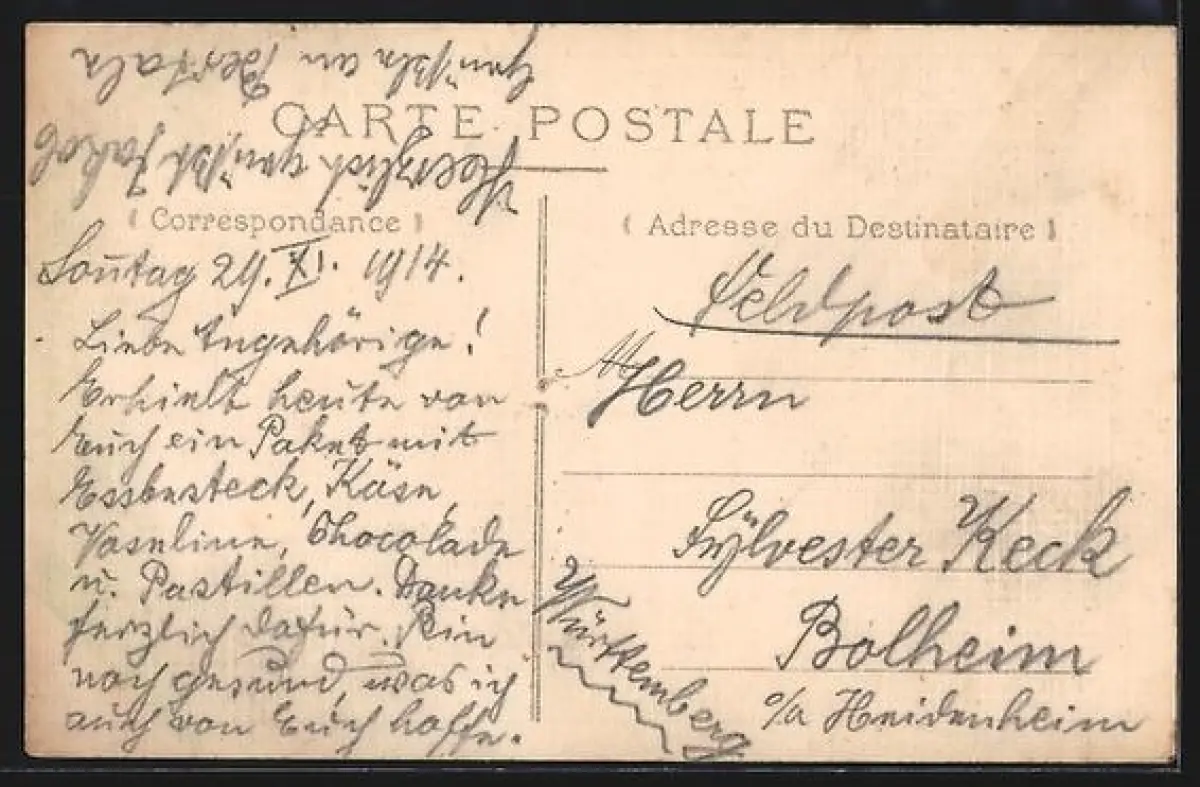 CARTE POSTALE
( Correspondance )
Sontag 29. XI. 1914.
Liebe Angehörige!
Erhielt heute von
Euch ein Paket mit
Essbesteck, Käse,
Vaseline, Chocolade
u. Pastillen. Danke
herzlich dafür. Bin
noch gesund, was ich
auch von Euch hoffe.
Herzlich grüßt Jakob
Grüße an
( Adresse du Destinataire )
Feldpost
Herrn
Sylvester Keck
Bolheim
o/a Heidenheim
Württemberg